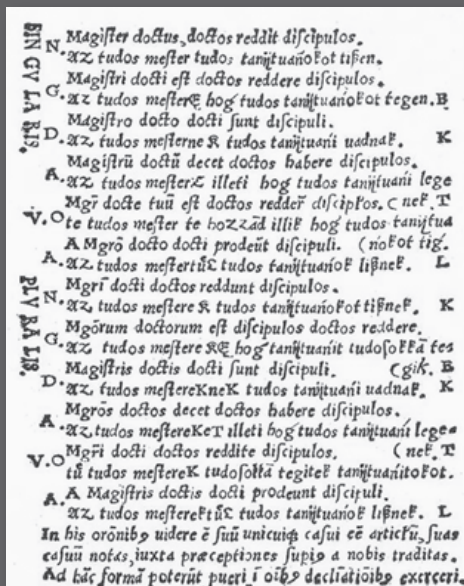 SINGULARIS.
N. Magiſter doctus, doctos reddit diſcipulos.
Az tudos meſter tudos tanijtuańokot tißen.
G. Magiſtri docti eſt doctos reddere diſcipulos.
Az tudos meſterE hog tudos tanijtuańokot tegen. B
D. Magiſtro docto docti ſunt diſcipuli.
Az tudos meſterne K tudos tanijtuańi uadnak. K
A. Magiſtrū doctū decet doctos habere diſcipulos.
Az tudos meſterT illeti hog tudos tanijtuańi lege
V. Mgr̄ docte tuū eſt doctos redder̄ diſcipłos. (nek. T
O te tudos meſter te hozzád illik hog tudos tanijtua
A. A Mgrō docto docti prodeūt diſcipuli. (ńokot tig.
Az tudos meſtertűL tudos tanijtuańok lißnek. L
PLURALIS.
N. Mgri docti doctos reddunt diſcipulos.
Az tudos meſtere K tudos tanijtuańokot tißnek. K
G. Mgōrum doctorum eſt diſcipulos doctos reddere.
Az tudos meſtere KE hog tanijtuańit tudoſokká tes
D. Magiſtris doctis docti ſunt diſcipuli. (gik. B
Az tudos meſtereKneK tudos tanijtuańi uadnak. K
A. Mgrōs doctos decet doctos habere diſcipulos.
Az tudos meſtereKeT illeti hog tudos tanijtuańi legea
V. Mgr̄i docti doctos reddite diſcipulos. (nek. T
O tű tudos meſtereK tudoſokká tegitek tanijtuańitokot.
A. A Magiſtris doctis docti prodeunt diſcipuli.
Az tudos meſterektűL tudos tanijtuańok lißnek. L
In his orōnibꝰ uidere ē ſuū unicuiqꝫ caſui eē articłū, ſuas
caſuū notas, iuxta præceptiones ſupiꝰ a nobis traditas.
Ad hāc formā poterūt pueri ī oībꝰ declīatiōibꝰ exerceri